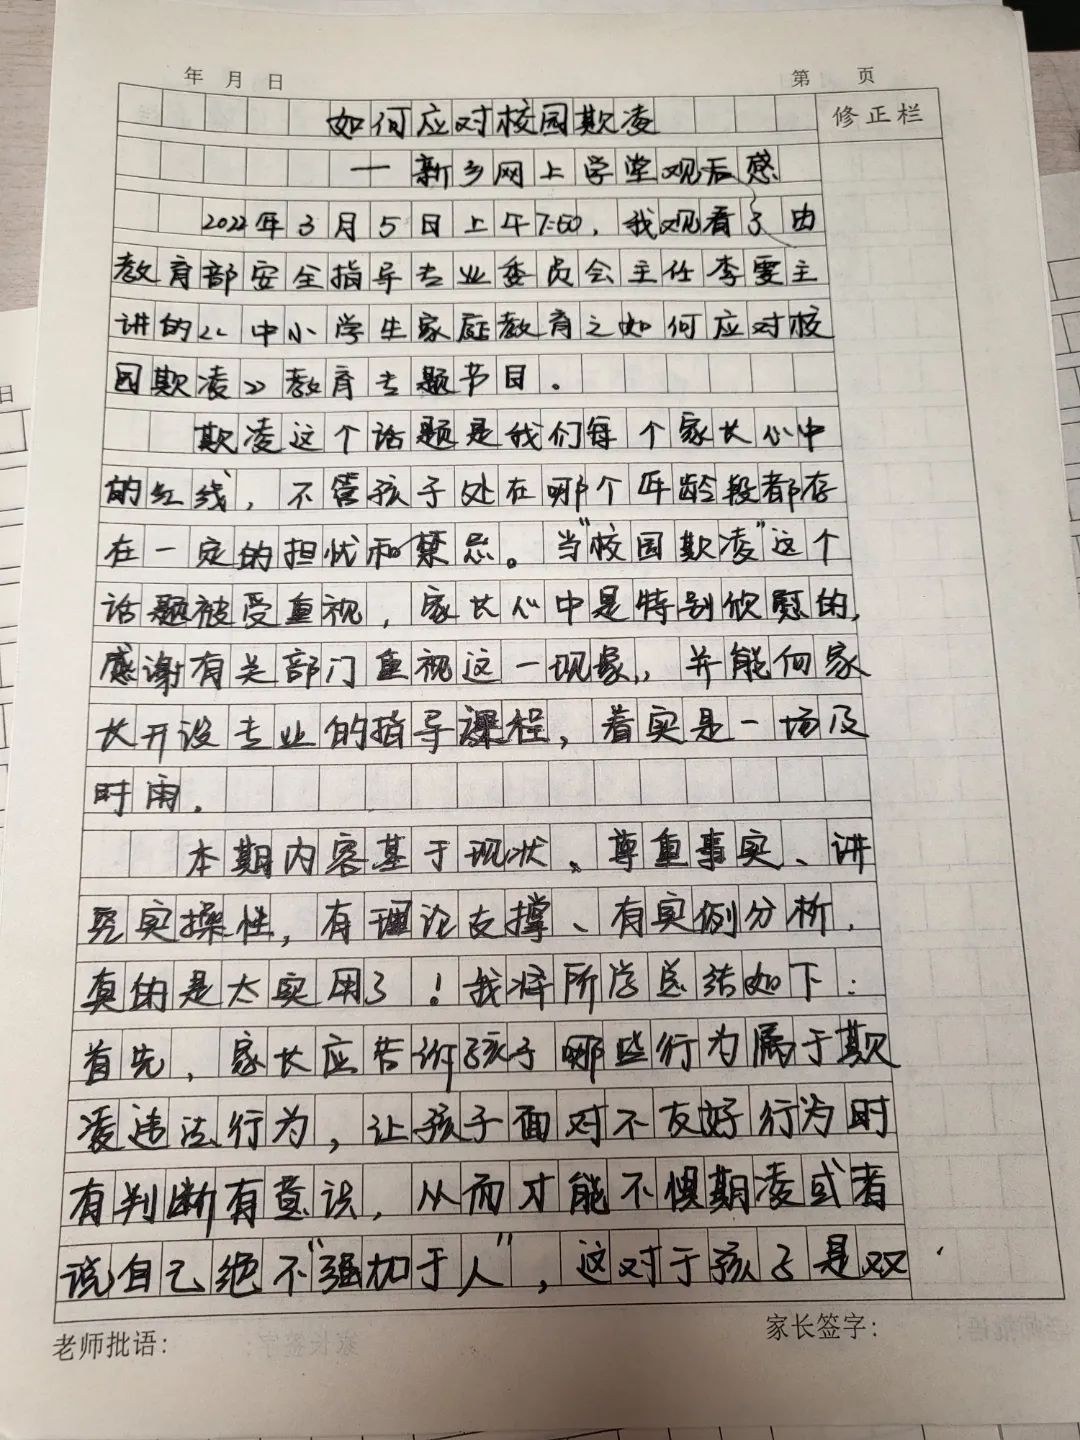 年 月 日 第 页
如何应对校园欺凌 修正栏
一新乡网上学堂观后感
2022年3月5日上午7:50，我观看了由
教育部安全指导专业委员会主任李雯主
讲的《中小学生家庭教育之如何应对校
园欺凌》教育专题节目。
欺凌这个话题是我们每个家长心中
的红线，不管孩子处在哪个年龄段都存
在一定的担忧和禁忌。当"校园欺凌"这个
话题被受重视，家长心中是特别欣慰的，
感谢有关部门重视这一现象，并能向家
长开设专业的指导课程，着实是一场及
时雨。
本期内容基于现状、尊重事实、讲
究实操性，有理论支撑、有实例分析，
真的是太实用了！我将所学总结如下：
首先，家长应告诉孩子哪些行为属于欺
凌违法行为，让孩子面对不友好行为时
有判断有意识，从而才能不惧期凌或者
说自己绝不"强加于人"，这对于孩子是双
老师批语： 家长签字：